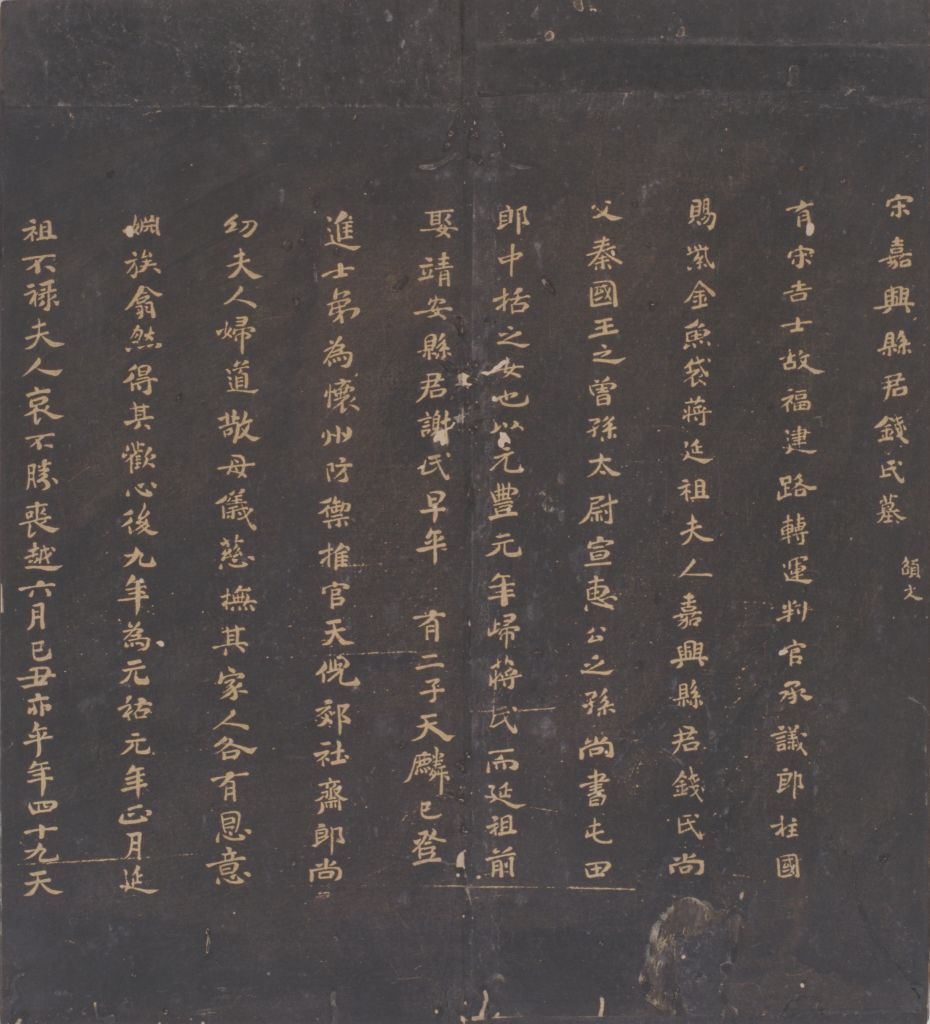 宋嘉興縣君錢氏墓
頌文
有宋吉士故福建路轉運判官承議郎柱國
賜紫金魚袋蔣延祖夫人嘉興縣君錢氏尚
父秦國王之曾孫太尉宣惠公之孫尚書屯田
郎中括之女也以元豐元年歸蔣氏而延祖前
娶靖安縣君謝氏早年 有二子天麟已登
進士弟為懷州防禦推官天倪郊社齋郎尚
幼夫人婦道敬母儀慈撫其家人各有恩意
姻族翕然得其歡心後九年為元祐元年正月延
祖不祿夫人哀不勝喪越六月己丑亦卒年四十九天